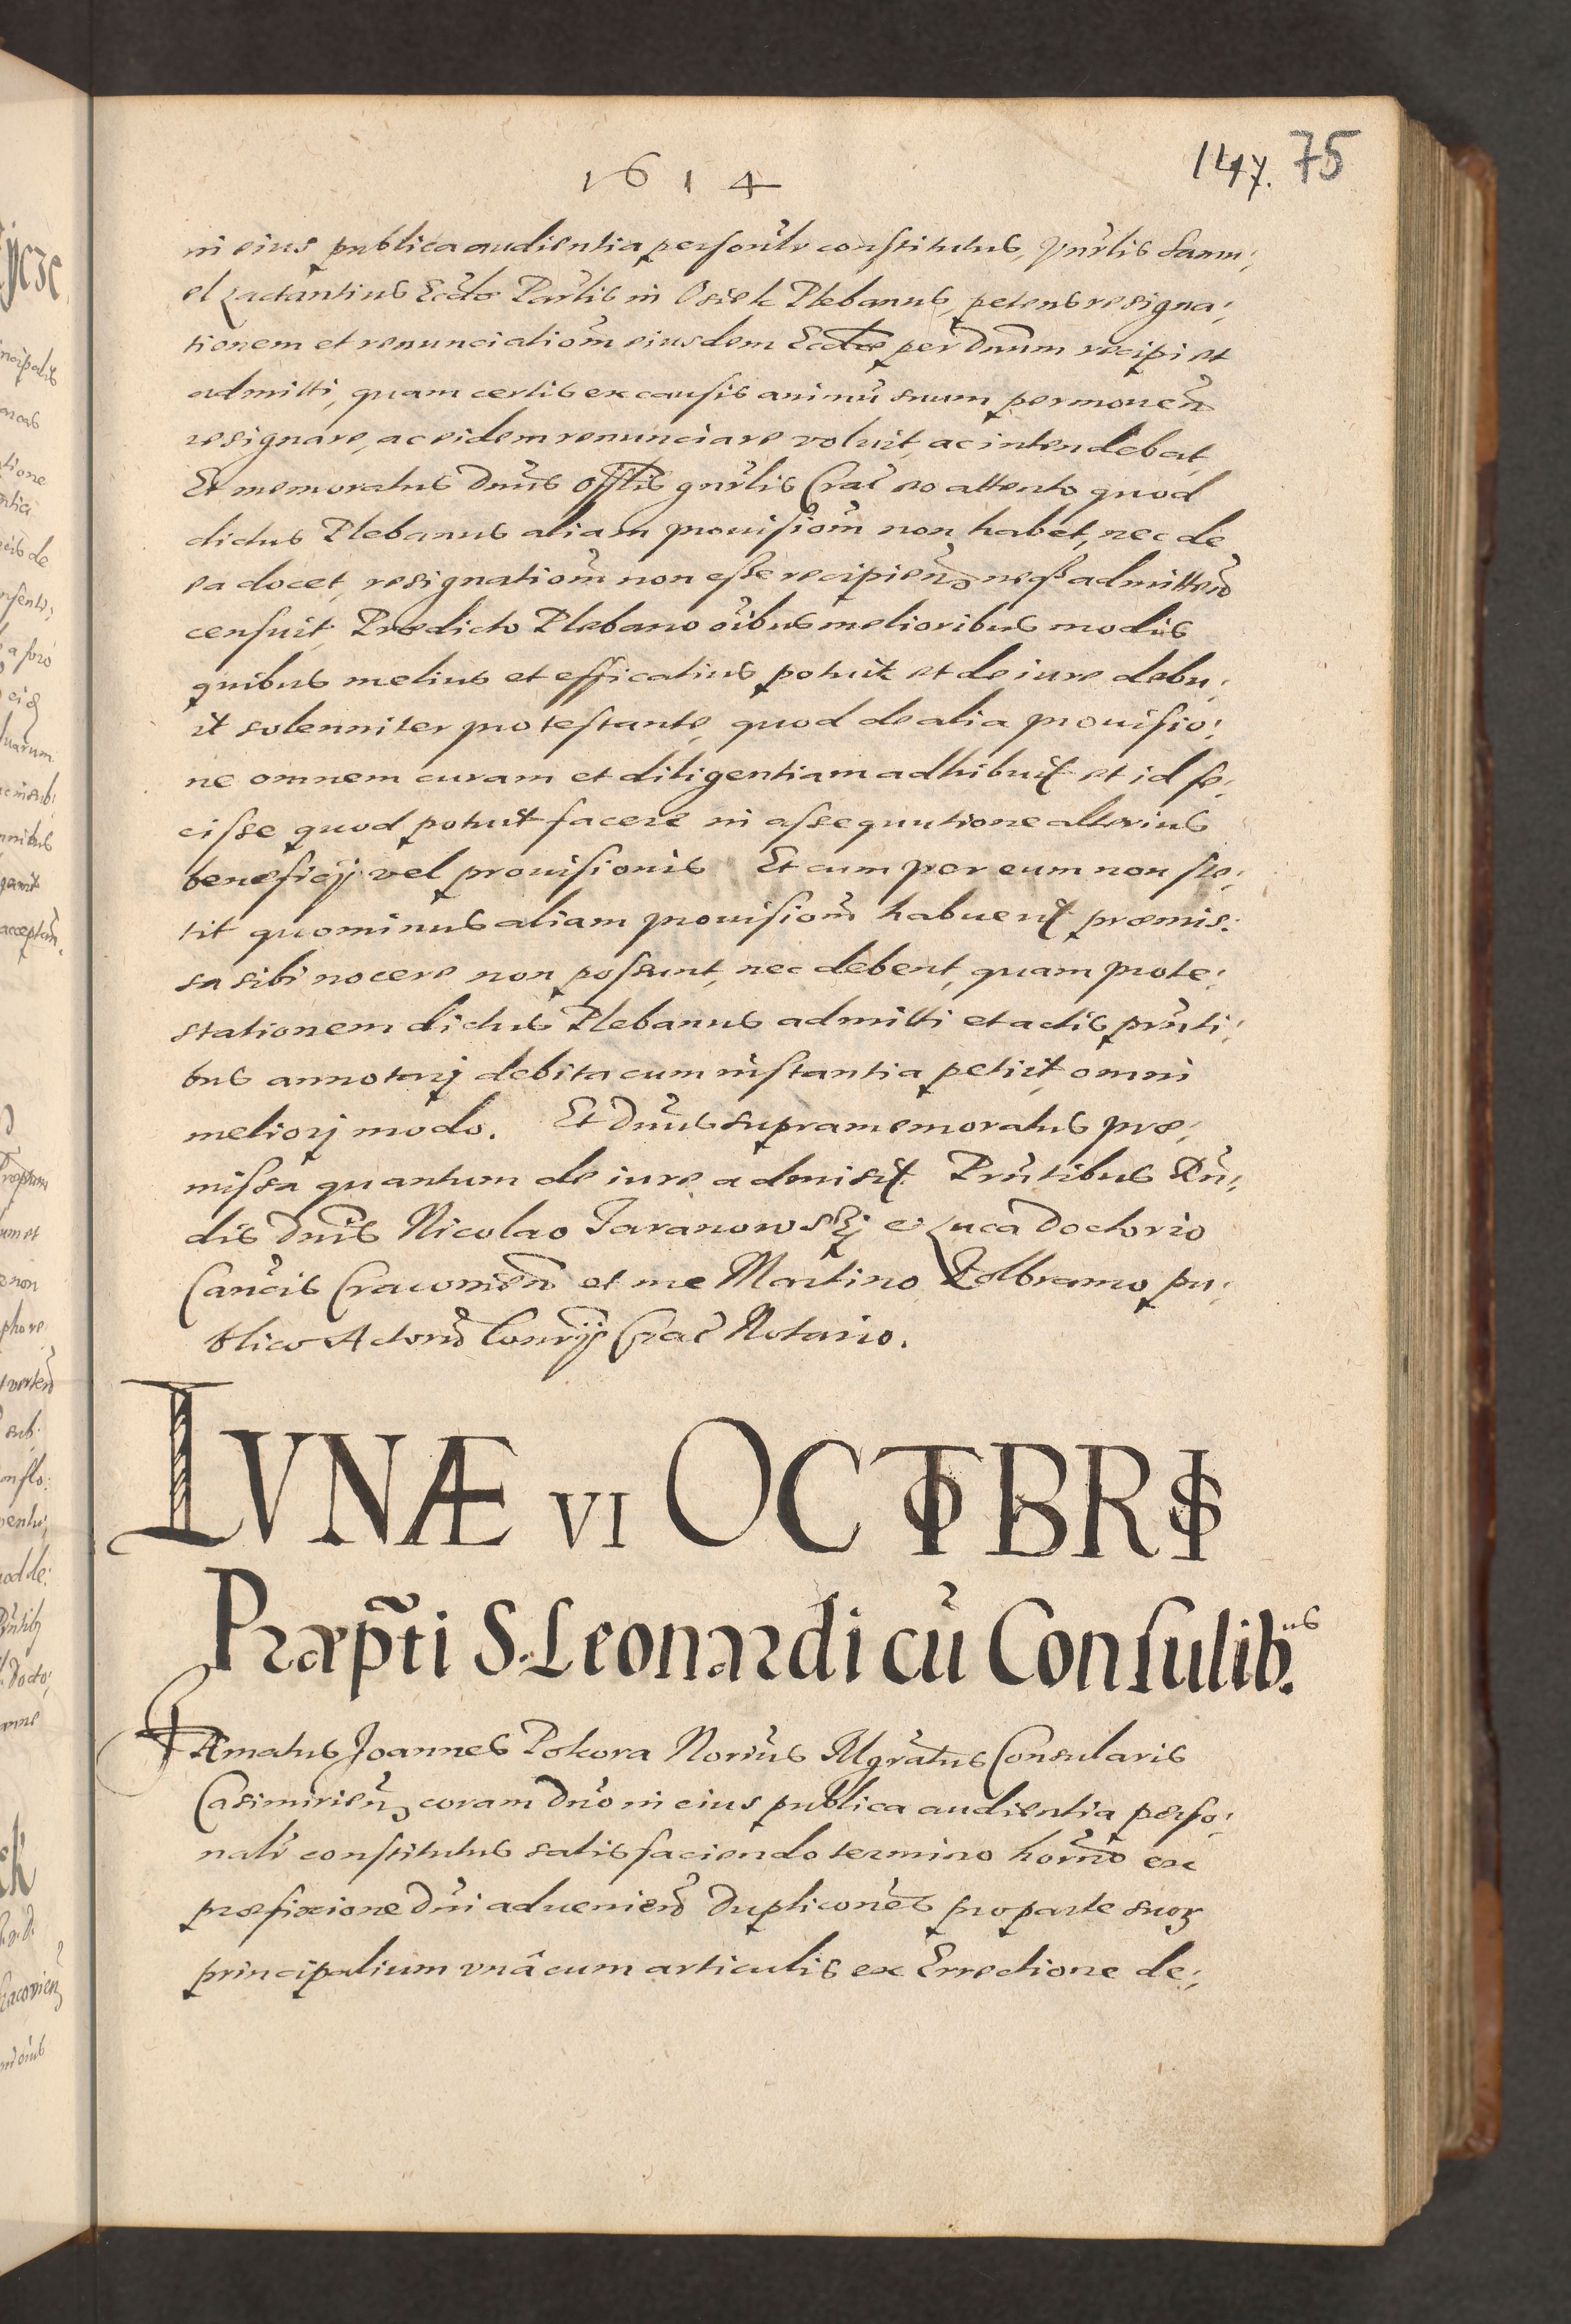 1614
147. 75
in eius publica audientia personlr constitutus, Vnrlis Samu:
el Lactantius Eccłae Parlis in Osiek Plebanus, petens resigna:
tionem et renunciatiom eiusdem Eccłae per Dnum recipi et
admitti, quam certis ex causis animu suum permouen
resignare, ac eidem renunciare voluit, ac intendebat,
Et memoratus Dnus Offlis gnrlis Crac eo attento quod
dictus Plebanus aliam prouisiom non habet, nec de
ea docet, resignatiom non esse recipien neqз admitten
censuit, Praedicto Plebano oibus melioribus modis
quibus melius et efficatius potuit et de iure debu:
it solenniter protestante, quod de alia prouisio:
ne omnem curam et diligentiam adhibuit et id fe:
cisse quod potuit facere in assequutione alterius
beneficij vel prouisionis Et cum per eum non ste:
tit quominus aliam prouisiom habuerit praemis:
sa sibi nocere non possunt, nec debent, quam prote:
stationem dictus Plebanus admitti et actis prnti:
bus annotarj debita cum instantia petiit, omni
meliorj modo. Et Dnus supramemoratus prae:
missa quantum de iure admisit. Prntibus Rn:
dis Dnis Nicolao Jaranowskj et Luca Doctorio
Cancis Cracouien et me Martino Wolbramo pu:
blico Actoru Consrij Crac Notario.
LVNÆ VI OCTOBRIS
Præpti S. Leonardi cu Consulib.us
Famatus Joannes Pokora Norius Mgratus Consularis
Casimirien coram Dno in eius publica audientia perso:
nalr constitutus satisfaciendo termino horno ex
praefixione Dni aduenien Duplicones pro parte suoꝝ
principalium vnâ cum articulis ex Errectione de: